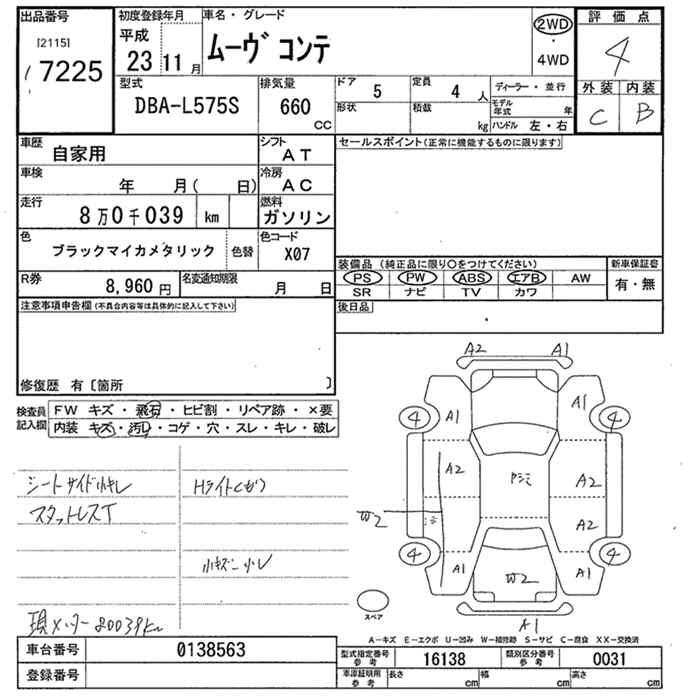 出品番号
[2115]
7225
初度登録年月
平成
23 11 月
車名・グレード
ムーヴ コンテ
2WD
・
4WD
評価点
4
外装 内装
C B
型式
DBA-L575S
排気量
660
CC
ドア
5
定員
4 人
形状
積載
kg
ディーラー・並行
モデル年式 年
ハンドル 左・右
車歴
自家用
シフト
AT
車検
年 月( 日)
冷房
AC
走行
8万0千039 km
燃料
ガソリン
色
ブラックマイカメタリック
色替
色コード
X07
R券
8,960 円
名変通知期限
月 日
セールスポイント(正常に機能するものに限ります)
装備品 (純正品に限り○をつけてください)
PS PW ABS エアB AW
SR ナビ TV カワ
新車保証書
有・無
後日品
注意事項申告欄(不具合内容等は具体的に記入して下さい)
修復歴 有〔箇所 〕
検査員
記入欄
FW キズ・飛石・ヒビ割・リペア跡・×要
内装 キズ・汚レ・コゲ・穴・スレ・キレ・破レ
シートサイド小キレ
スタットレスT
Hライトくもり
小キズ 小U
現メーター80039km
A2 A1
A1 A1
4 4
A2 A2
W2 A2
4 4
A1 W2 A1
A1
スペア
A-キズ E-エクボ U-凹み W-補修跡 S-サビ C-腐食 XX-交換済
車台番号
0138563
登録番号
型式指定番号
参考
16138
類別区分番号
参考
0031
車庫証明用
参考
長さ cm
幅 cm
高さ cm